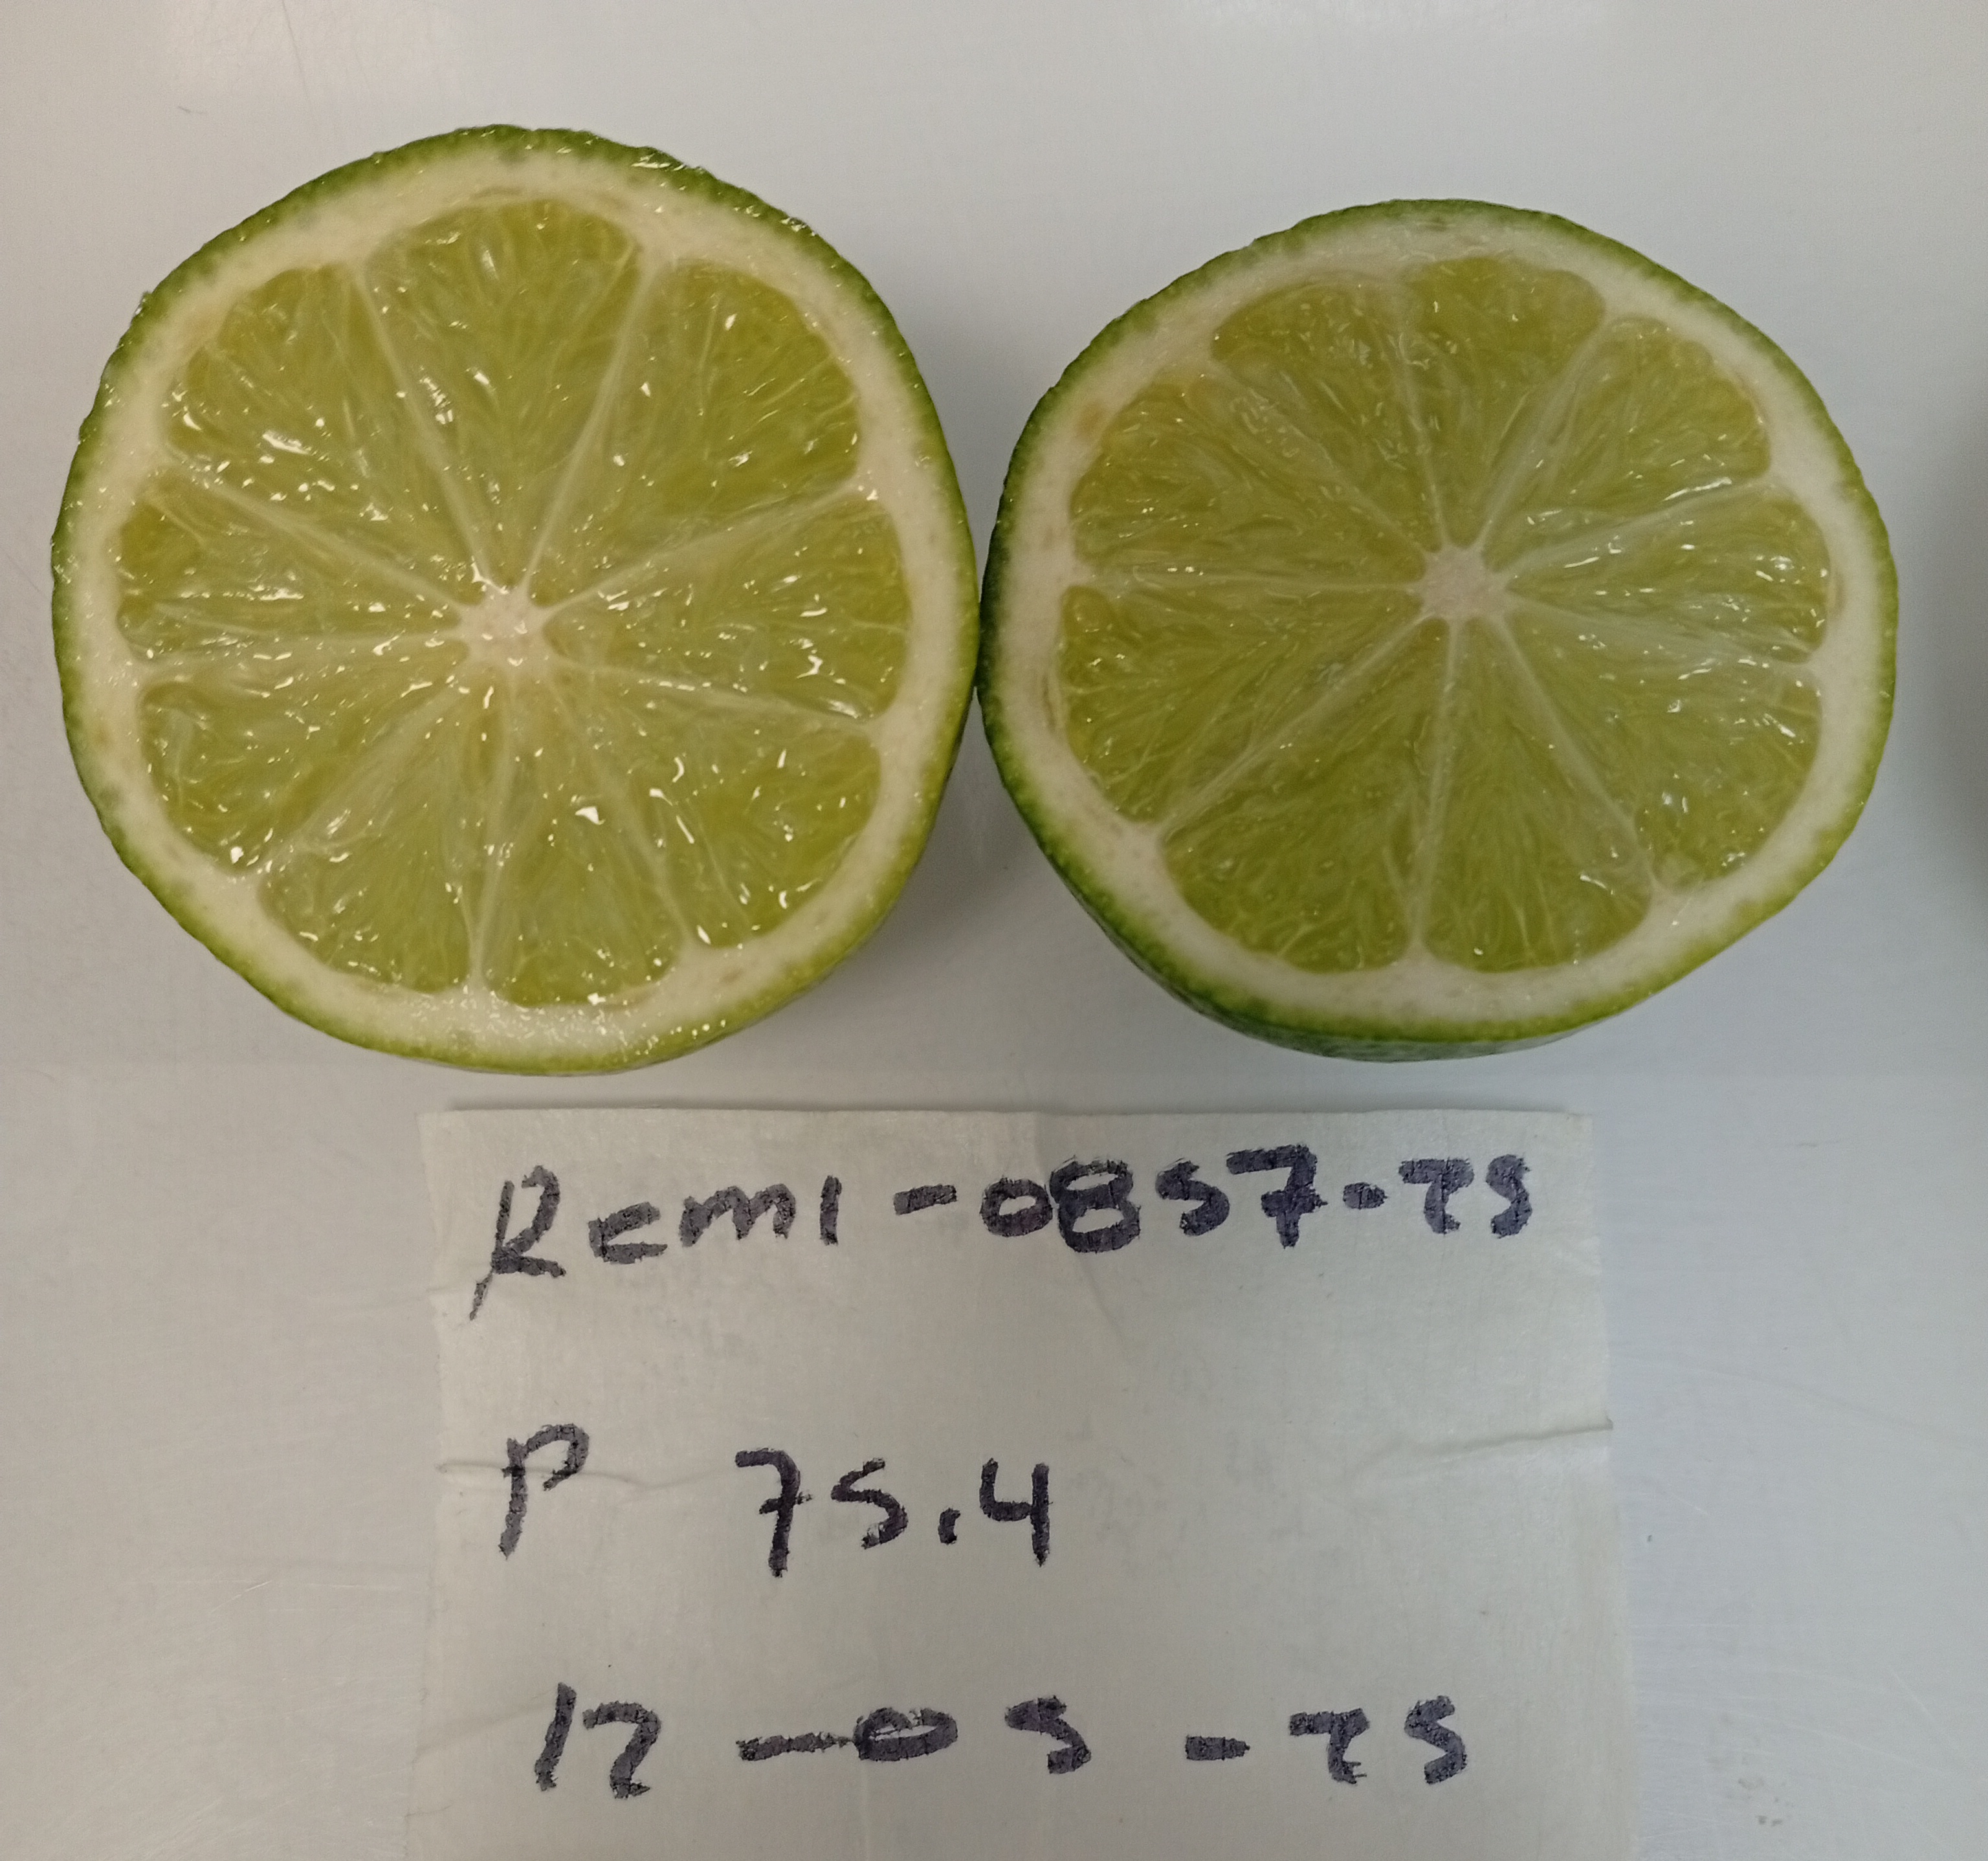 Remi-0857-25
P 75.4
12-05-25